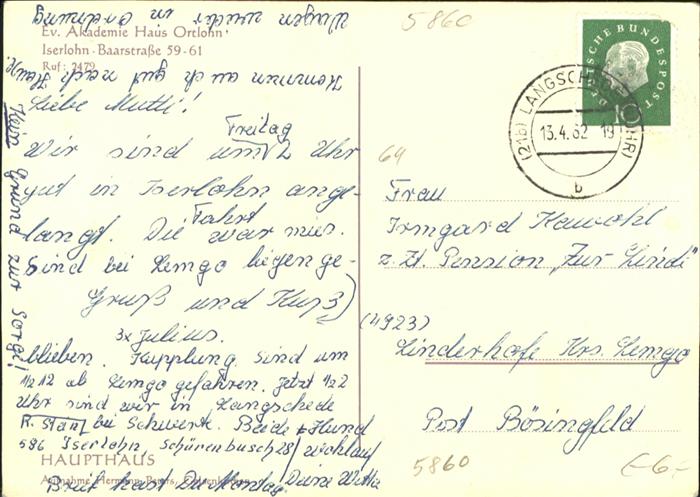 Wagen wieder in Ordnung
5860
Ev. Akademie Haus Ortlohn
Iserlohn - Baarstraße 59-61
Ruf: 2479
Kommen auch gut nach Haus
Kein Grund zur Sorge!
Liebe Mutti!
Freitag
Wir sind um 1/2 2 Uhr
gut in Iserlohn ange-
langt. Die Fahrt war mies.
Sind bei Lemgo liegenge-
Gruß und Kuß
3x Julius.
blieben. Kupplung. Sind um
1/2 12 ab Lemgo gefahren. Jetzt 1/2 2
Uhr sind wir in Langschede
R. Stanj bei Schwerte. Beide + Hund
586 Iserlohn, Schürenbusch 28/ wohlauf
HAUPTHAUS
Aufnahme Hermann Peters,
Brief hast Du Montag. Deine Mutta
DEUTSCHE BUNDESPOST
10
(21b) LANGSCHEDE (RUHR)
13.4.62 19
b
64
Frau
Irmgard Kawohl
z. Zt. Pension „Zur Linde"
(4923)
Linderhofe Krs. Lemgo
Post Bösingfeld
5860
-6-